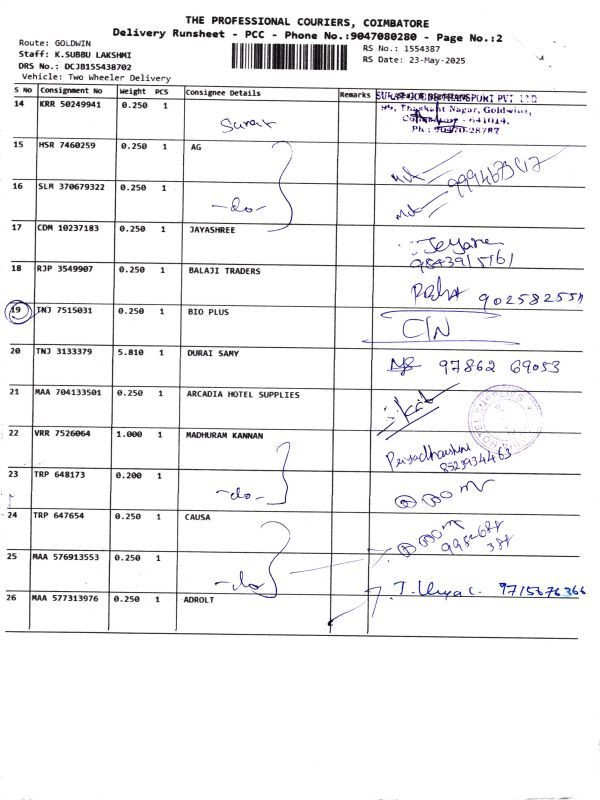 THE PROFESSIONAL COURIERS, COIMBATORE
Delivery Runsheet - PCC - Phone No.:9047080280 - Page No.:2
Route: GOLDWIN
Staff: K.SUBBU LAKSHMI
DRS No.: DCJB155438702
Vehicle: Two Wheeler Delivery
RS No.: 1554387
RS Date: 23-May-2025
S No Consignment No Weight PCS Consignee Details Remarks
14 KRR 50249941 0.250 1
95, Thaskant Nagar, Goldwins,
Coimbatore - 641014.
Ph : 90470-28787
15 HSR 7460259 0.250 1 AG
16 SLM 370679322 0.250 1
-do-
17 CDM 10237183 0.250 1 JAYASHREE
18 RJP 3549907 0.250 1 BALAJI TRADERS
19 TNJ 7515031 0.250 1 BIO PLUS
C/N
20 TNJ 3133379 5.810 1 DURAI SAMY
97862 69053
21 MAA 704133501 0.250 1 ARCADIA HOTEL SUPPLIES
22 VRR 7526064 1.000 1 MADHURAM KANNAN
Priyadharshini
8523934463
23 TRP 648173 0.200 1
-do-
24 TRP 647654 0.250 1 CAUSA
25 MAA 576913553 0.250 1
-do-
9715676366
26 MAA 577313976 0.250 1 ADROLT